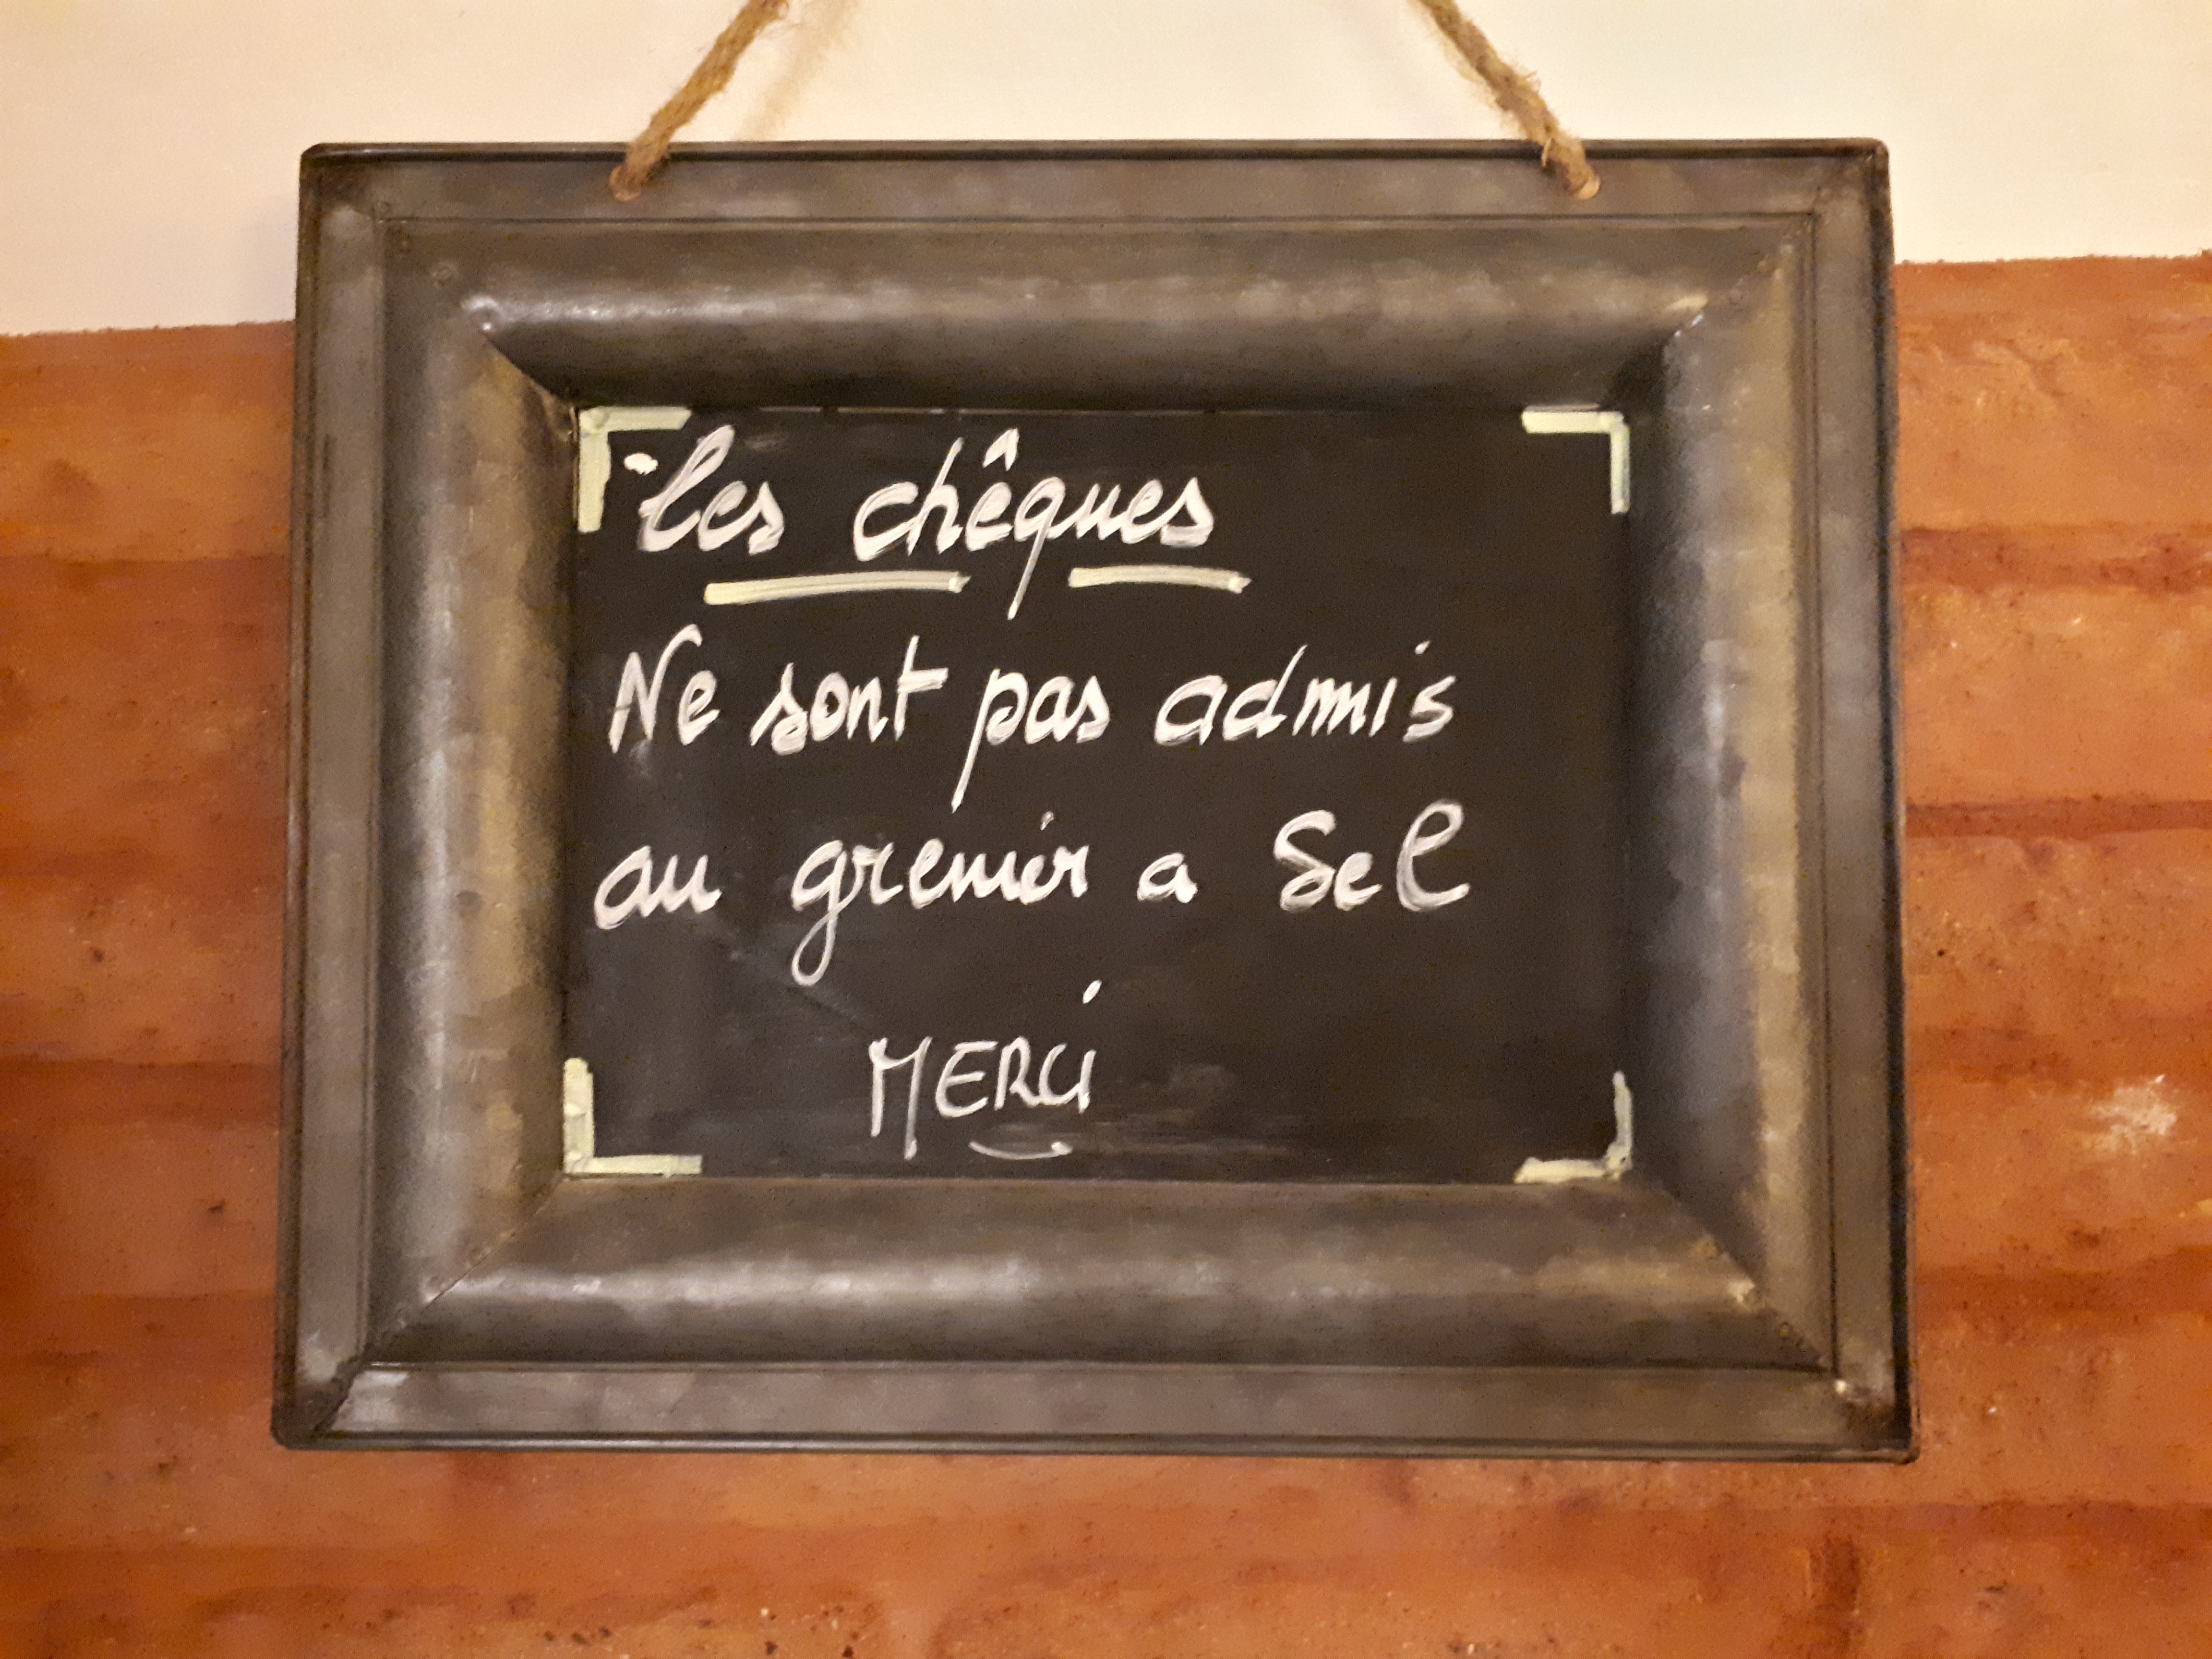 Les chêques
Ne sont pas admis
au grenier a Sel
MERCi